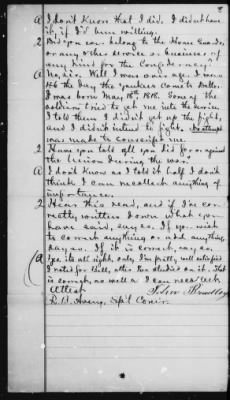 8
A I don't know that I did. I didn't have
it, if I'd been willing.
Q Did you ever belong to the Home Guards,
or any other service or business of
any kind for the Confederacy?
A No, sir. Well I was over age. I was
the day the yankees come to
I was born May 18th, Some of the
soldiers tried to get me into the service
I told them I didn't get up the fight,
and I didn't intend to fight. No attempt
was made to conscript me.
Q Have you told all you did for or against
the Union during the war?
A I don't know as I told it half I don't
think I can recollect anything of
importance.
Q Hear this read, and if I've cor-
rectly written down what you
have said, say so. If you wish
to correct anything or add anything,
say so. If it is correct, say so.
A Yes its all right, only I'm pretty well satisfied
I voted for Bell, after I've studied on it. That
is correct, as well as I can recollect
Attest John Bradley
R. B. Avery, Sp'l Comr.